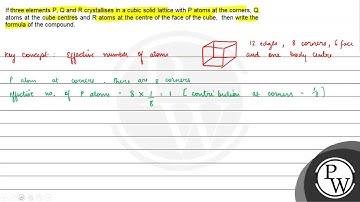 If three elements P, Q and R crystallises in a cubic solid lattice with P atoms at the corners, Q
atoms at the cube centres and R atoms at the centre of the face of the cube, then write the
formula of the compound.
Key concept : Effective number of atoms
12 edges, 8 corners, 6 face
and one body centre
P atom at corners. There are 8 corners
effective no. of P atoms = 8 × 1/8 = 1 [contribution at corners = 1/8]
PW